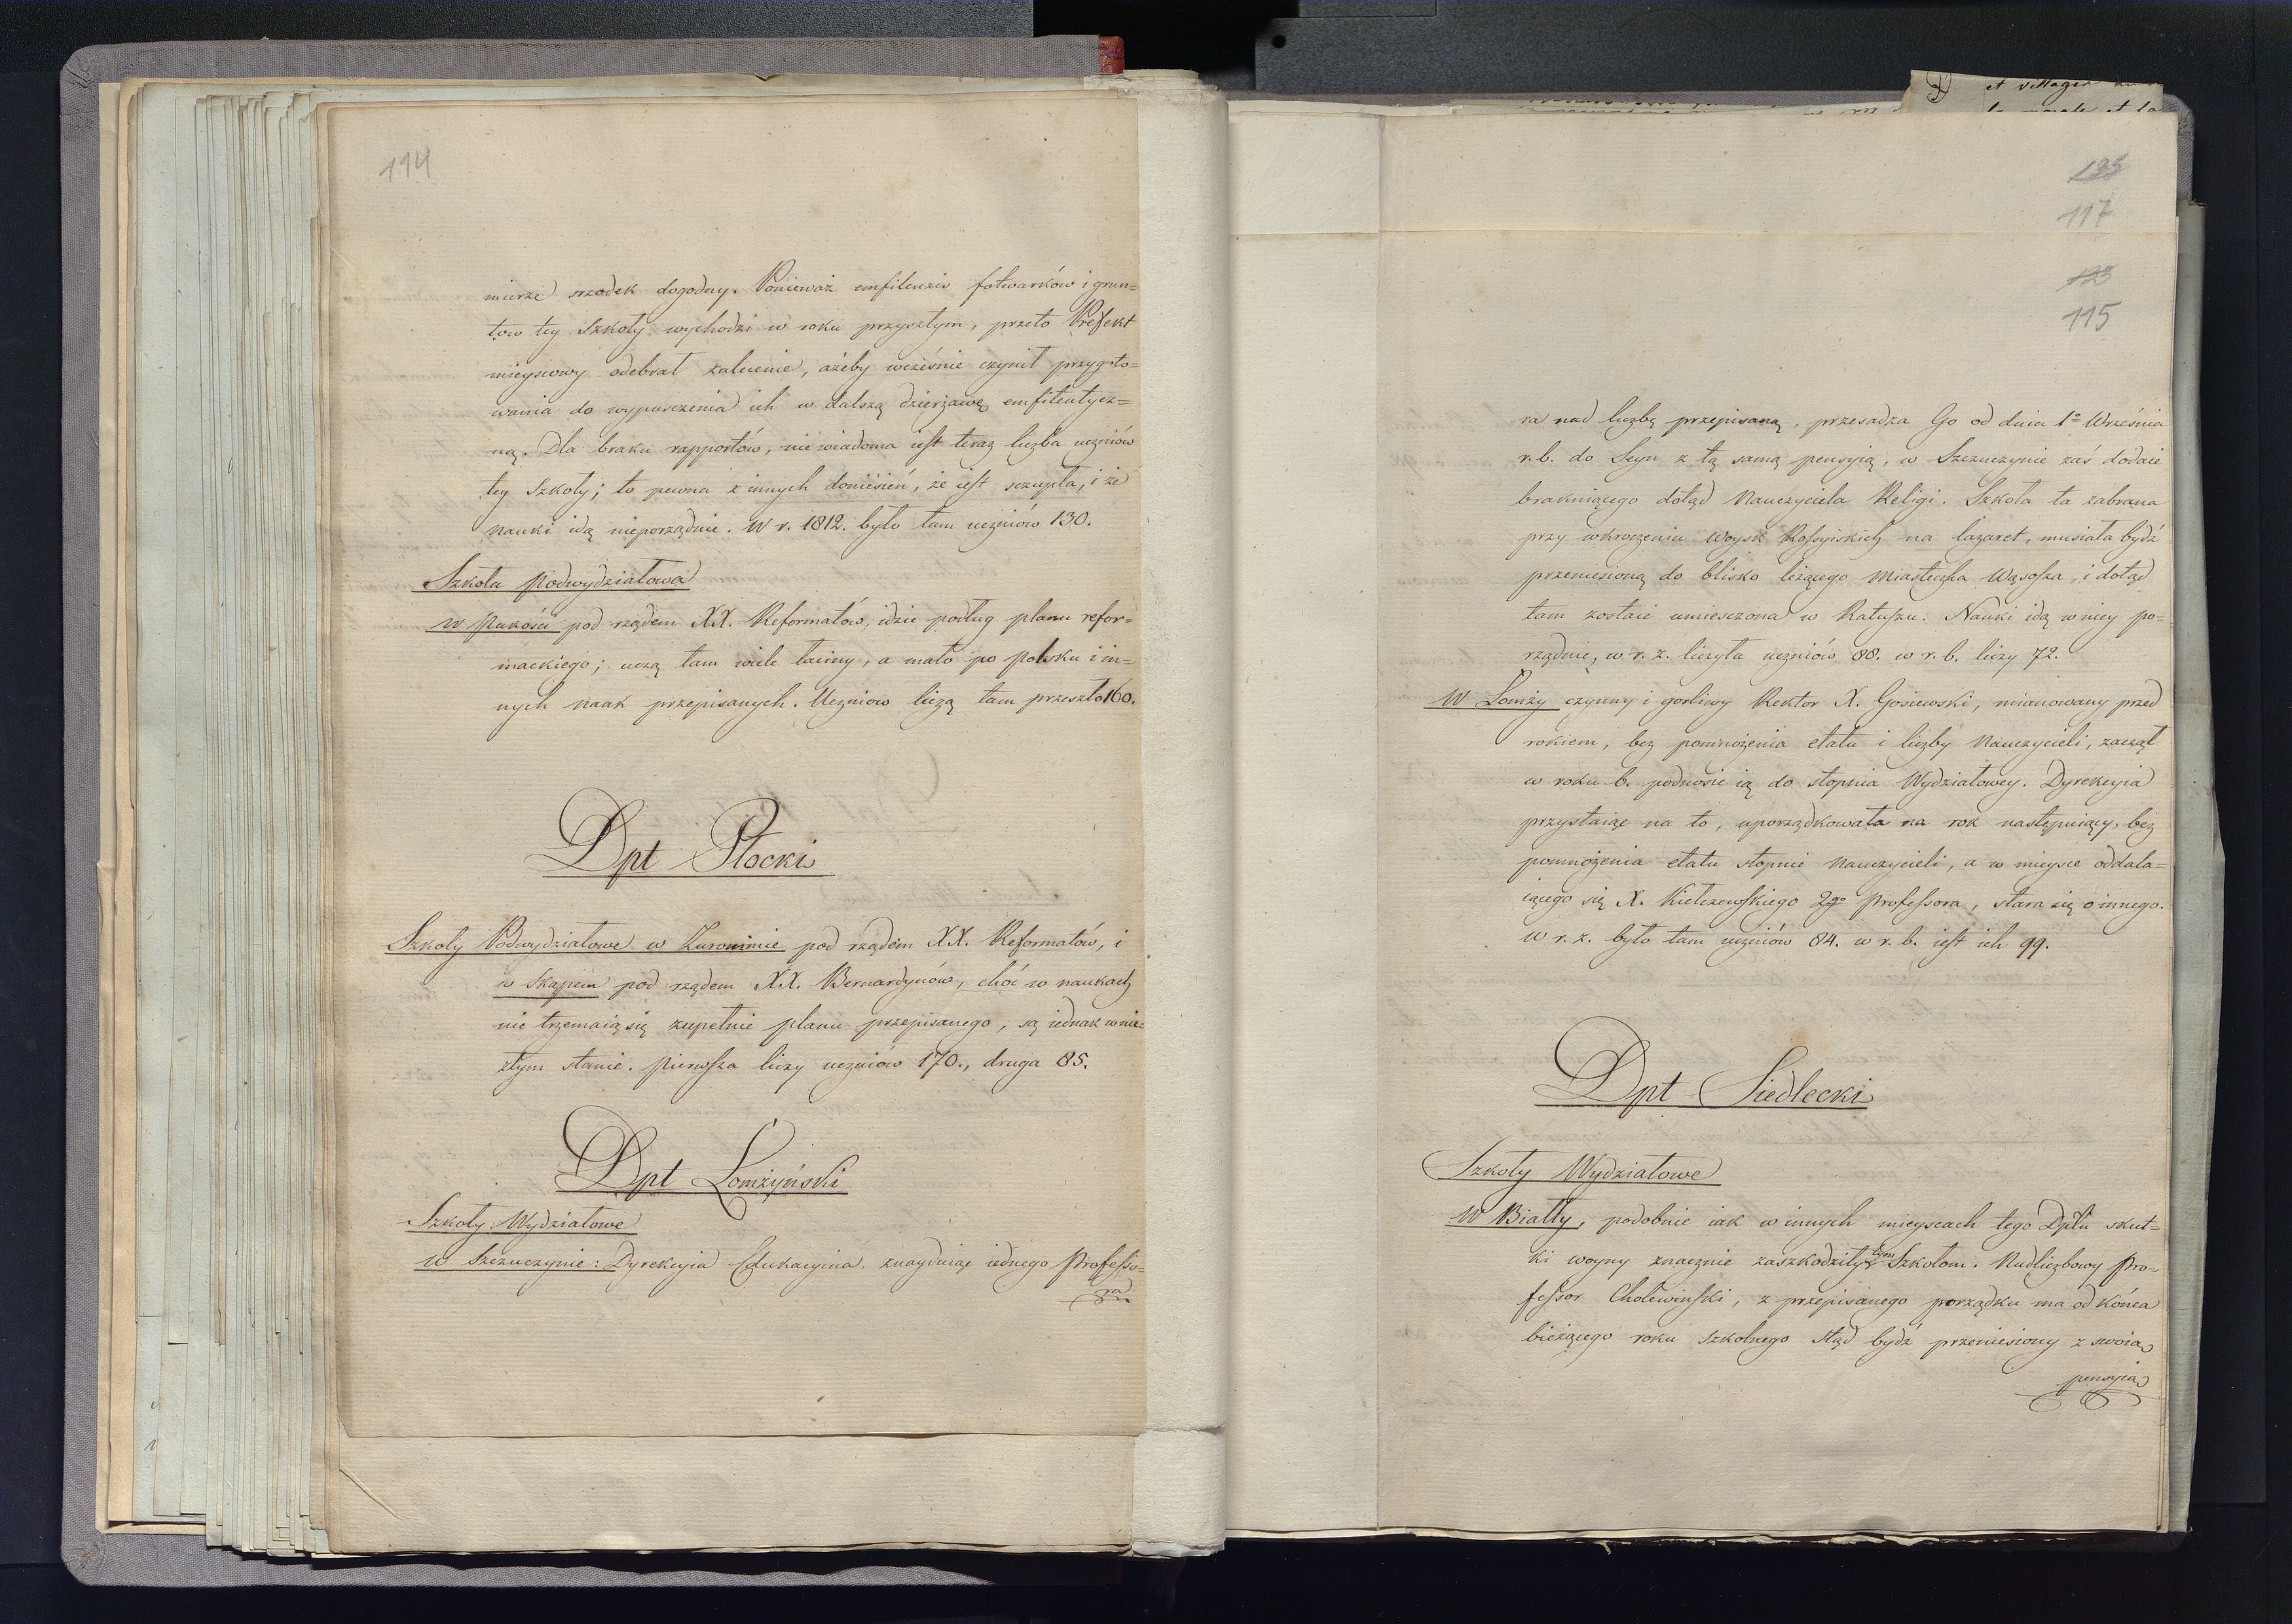 114
mierze srzodek dogodny. Ponieważ emfiteuzis folwarków i grun=
tow tey Szkoły wychodzi w roku przyszłym, przeto Prefekt
mieyscowy odebrał zalecenie, ażeby wcześnie czynił przygoto=
wania do wypusczenia ich w dalszą dzierżawę emfiteutycz=
ną. Dla braku rapportów, nie wiadoma iest teraz liczba uczniów
tey Szkoły; to pewna z innych doniesień, że iest sczupła, i że
nauki idą nieporządnie. W r. 1812. było tam uczniów 130.
Szkoła Podwydziałowa
w Pakości pod rządem XX. Reformatów, idzie podług planu refor=
mackiego; uczą tam wiele łaciny, a mało po polsku i in=
nych nauk przepisanych. Uczniow liczą tam przeszło 160.
Dpt Płocki
Szkoły Podwydziałowe w Żurominie pod rządem XX. Reformatów, i
w Skąpem pod rządem XX. Bernardynów, choć w naukach
nie trzemaią się zupełnie planu przepisanego, są iednak w nie=
złym stanie. Pierwsza liczy uczniów 170., druga 85.
Dpt Łomżyński
Szkoły Wydziałowe
w Szczuczynie: Dyrekcyia Edukacyina, znayduiąc iednego Professo=
ra
et villages
la morale et la
117
123
115
ra nad liczbę przepisaną, przesadza Go od dnia 1º Września
r. b. do Seyn z tą samą pensyią, w Szczuczynie zaś dodaie
brakuiącego dotąd Nauczyciela Religi. Szkoła ta zabrana
przy wkroczeniu Woysk Rossyiskich na lazaret, musiała bydź
przeniesioną do blisko leżącego Miasteczka Wąsosza, i dotąd
tam zostaie umiesczona w Ratuszu. Nauki idą w niey po=
rządnie, w r. z. liczyła uczniów 88. w r. b. liczy 72.
W Łomży czynny i gorliwy Rektor X. Gosiewski, mianowany przed
rokiem, bez pomnożenia etatu i liczby Nauczycieli, zaczął
w roku b. podnosić ią do stopnia Wydziałowey. Dyrekcyia
przystaiąc na to, uporządkowała na rok następuiący, bez
pomnożenia etatu stopnie Nauczycieli, a w mieysce oddala=
iącego się X. Kiełczewskiego 2go Professora, stara się o innego.
W r. z. było tam uczniów 84. w r. b. iest ich 99.
Dpt Siedlecki
Szkoły Wydziałowe
W Białły, podobnie iak w innych mieyscach tego Dptu skut=
ki woyny znacznie zaszkodziły tym Szkołom. Nadliczbowy Pro=
fessor Cholewinski, z przepisanego porządku ma od końca
bieżącego roku szkolnego stąd bydź przeniesiony z swoią
pensyią